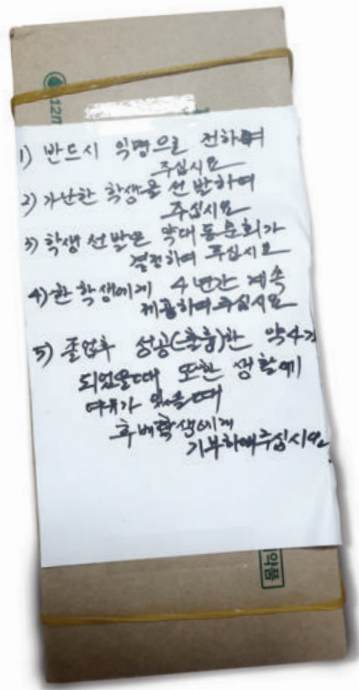 12m
1) 반드시 익명으로 전하여
주십시요
2) 가난한 학생을 선발하여
주십시요
3) 학생 선발은 약대동문회가
결정하여 주십시요
4) 한 학생에게 4년간 계속
제공하여 주십시요
5) 졸업후 성공(훌륭)한 약사가
되었을때 또한 생활에
여유가 있을때
후배학생에게
기부하여주십시요
약품